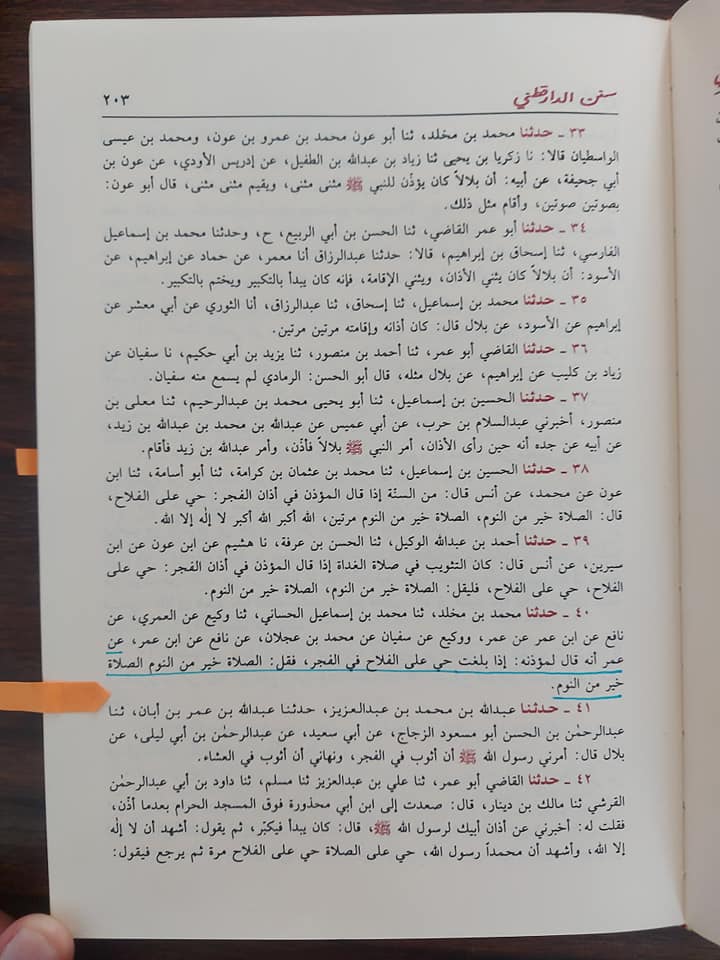 سنن الدارقطني ٢٠٣
٣٣ ـ حدثنا محمد بن مخلد، ثنا أبو عون محمد بن عمرو بن عون، ومحمد بن عيسى
الواسطيان قالا: نا زكريا بن يحيى ثنا زياد بن عبدالله بن الطفيل، عن إدريس الأودي، عن عون بن
أبي جحيفة، عن أبيه: أن بلالاً كان يؤذّن للنبي ﷺ مثنى مثنى، ويقيم مثنى مثنى، قال أبو عون:
بصوتين صوتين، وأقام مثل ذلك.
٣٤ ـ حدثنا أبو عمر القاضي، ثنا الحسن بن أبي الربيع، ح، وحدثنا محمد بن إسماعيل
الفارسي، ثنا إسحاق بن إبراهيم، قالا: حدثنا عبدالرزاق أنا معمر، عن حماد عن إبراهيم، عن
الأسود: أن بلالاً كان يثني الأذان، ويثني الإقامة، فإنه كان يبدأ بالتكبير ويختم بالتكبير.
٣٥ ـ حدثنا محمد بن إسماعيل، ثنا إسحاق، ثنا عبدالرزاق، أنا الثوري عن أبي معشر عن
إبراهيم عن الأسود، عن بلال قال: كان أذانه وإقامته مرتين مرتين.
٣٦ ـ حدثنا القاضي أبو عمر، ثنا أحمد بن منصور، ثنا يزيد بن أبي حكيم، نا سفيان عن
زياد بن كليب عن إبراهيم، عن بلال مثله، قال أبو الحسن: الرمادي لم يسمع منه سفيان.
٣٧ ـ حدثنا الحسين بن إسماعيل، ثنا أبو يحيى محمد بن عبدالرحيم، ثنا معلى بن
منصور، أخبرني عبدالسلام بن حرب، عن أبي عميس عن عبدالله بن محمد بن عبدالله بن زيد،
عن أبيه عن جده أنه حين رأى الأذان، أمر النبي ﷺ بلالاً فأذّن، وأمر عبدالله بن زيد فأقام.
٣٨ ـ حدثنا الحسين بن إسماعيل، ثنا محمد بن عثمان بن كرامة، ثنا أبو أسامة، ثنا ابن
عون عن محمد، عن أنس قال: من السنّة إذا قال المؤذن في أذان الفجر: حي على الفلاح،
قال: الصلاة خير من النوم، الصلاة خير من النوم مرتين، الله أكبر الله أكبر لا إلٰه إلا الله.
٣٩ ـ حدثنا أحمد بن عبدالله الوكيل، ثنا الحسن بن عرفة، نا هشيم عن ابن عون عن ابن
سيرين، عن أنس قال: كان التثويب في صلاة الغداة إذا قال المؤذن في أذان الفجر: حي على
الفلاح، حي على الفلاح، فليقل: الصلاة خير من النوم، الصلاة خير من النوم.
٤٠ ـ حدثنا محمد بن مخلد، ثنا محمد بن إسماعيل الحساني، ثنا وكيع عن العمري، عن
نافع عن ابن عمر عن عمر، ووكيع عن سفيان عن محمد بن عجلان، عن نافع عن ابن عمر، عن
عمر أنه قال لمؤذنه: إذا بلغت حي على الفلاح في الفجر، فقل: الصلاة خير من النوم الصلاة
خير من النوم.
٤١ ـ حدثنا عبدالله بن محمد بن عبدالعزيز، حدثنا عبدالله بن عمر بن أبان، ثنا
عبدالرحمٰن بن الحسن أبو مسعود الزجاج، عن أبي سعيد، عن عبدالرحمٰن بن أبي ليلى، عن
بلال قال: أمرني رسول الله ﷺ أن أثوب في الفجر، ونهاني أن أثوب في العشاء.
٤٢ ـ حدثنا القاضي أبو عمر، ثنا علي بن عبدالعزيز ثنا مسلم، ثنا داود بن أبي عبدالرحمٰن
القرشي ثنا مالك بن دينار، قال: صعدت إلى ابن أبي محذورة فوق المسجد الحرام بعدما أذّن،
فقلت له: أخبرني عن أذان أبيك لرسول الله ﷺ، قال: كان يبدأ فيكبّر، ثم يقول: أشهد أن لا إلٰه
إلا الله، وأشهد أن محمداً رسول الله، حي على الصلاة حي على الفلاح مرة ثم يرجع فيقول: